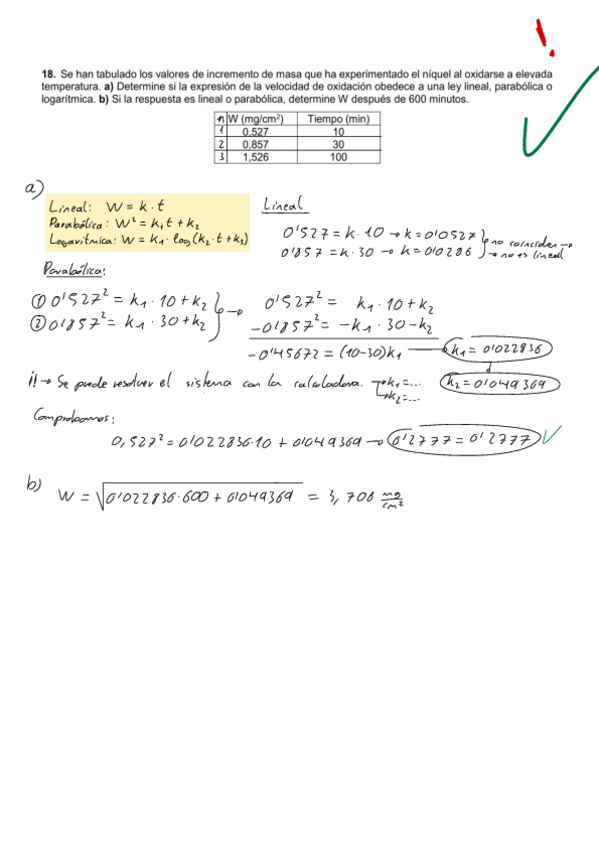 18. Se han tabulado los valores de incremento de masa que ha experimentado el níquel al oxidarse a elevada
temperatura. a) Determine si la expresión de la velocidad de oxidación obedece a una ley lineal, parabólica o
logarítmica. b) Si la respuesta es lineal o parabólica, determine W después de 600 minutos.
n W (mg/cm²) Tiempo (min)
1 0,527 10
2 0,857 30
3 1,526 100
a)
Lineal: W = k · t
Parabólica: W² = k₁t + k₂
Logarítmica: W = k₁ · log(k₂ · t + k₃)
Lineal
0'527 = k · 10 → k = 0'0527
0'857 = k · 30 → k = 0'0286
no coinciden →
→ no es lineal
Parabólica:
① 0'527² = k₁ · 10 + k₂
② 0'857² = k₁ · 30 + k₂
→
0'527² = k₁ · 10 + k₂
-0'857² = -k₁ · 30 - k₂
-0'45672 = (10-30)k₁ → k₁ = 0'022836
k₂ = 0'049369
¡! → Se puede resolver el sistema con la calculadora. → k₁ = ...
→ k₂ = ...
Comprobamos:
0,527² = 0'022836·10 + 0'049369 → 0'2777 = 0'2777 ✓
b)
W = √(0'022836·600 + 0'049369) = 3,708 mg/cm²